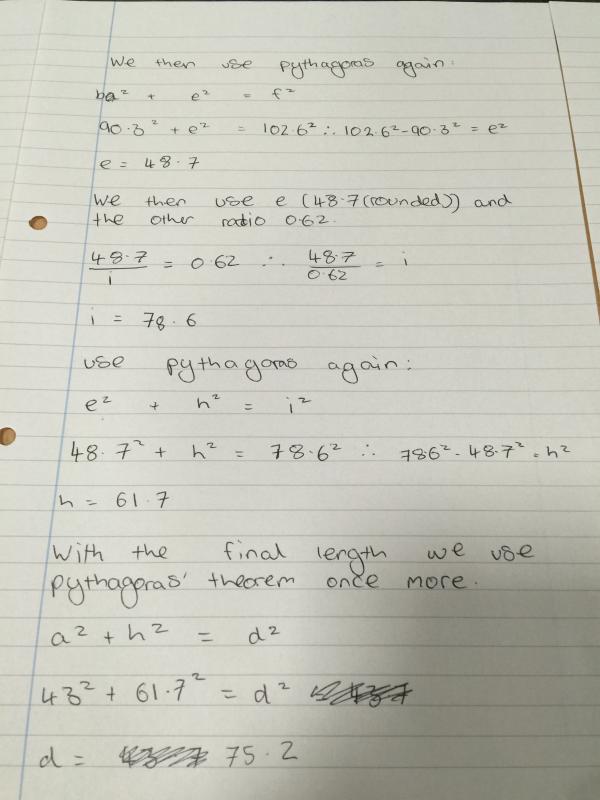 We then use pythagoras again:
ba² + e² = f²
90.3² + e² = 102.6² ∴ 102.6² - 90.3² = e²
e = 48.7
We then use e (48.7(rounded)) and
the other ratio 0.62.
48.7/i = 0.62 ∴ 48.7/0.62 = i
i = 78.6
use pythagoras again:
e² + h² = i²
48.7² + h² = 78.6² ∴ 786² - 48.7² = h²
h = 61.7
With the final length we use
pythagoras' theorem once more.
a² + h² = d²
43² + 61.7² = d²
d = 75.2